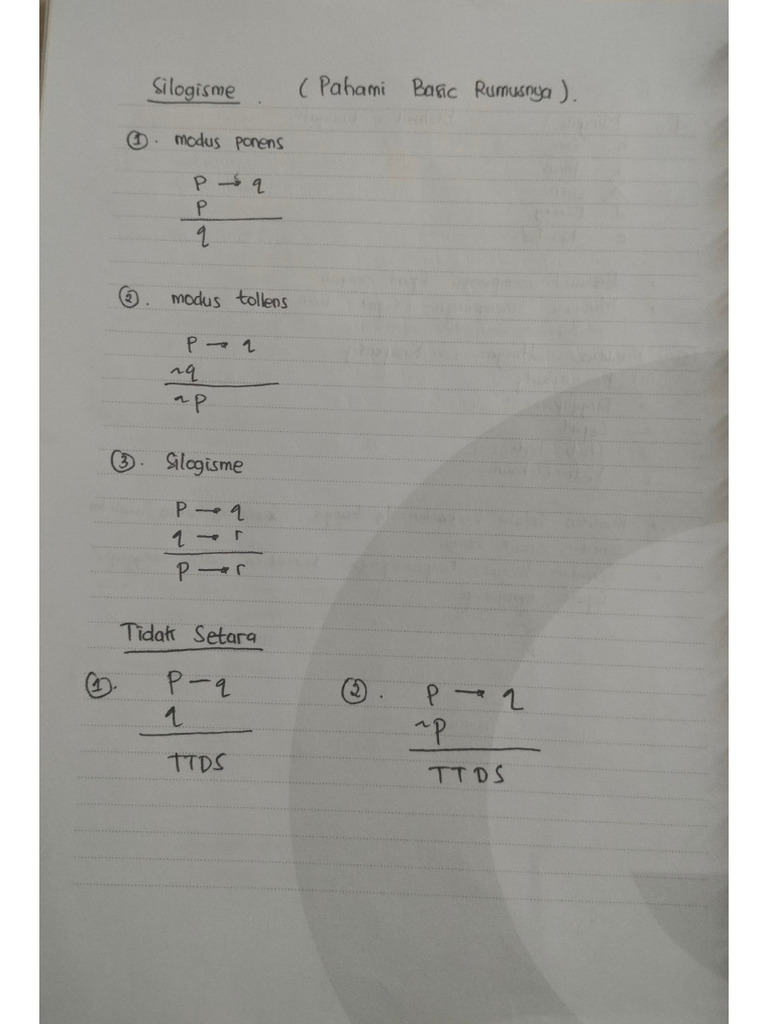 Silogisme . (Pahami Basic Rumusnya).
①. modus ponens
P → q
P
q
②. modus tollens
P → q
~q
~P
③. Silogisme
P → q
q → r
P → r
Tidak Setara
①. P – q
q
TTDS
②. P → q
~P
TTDS